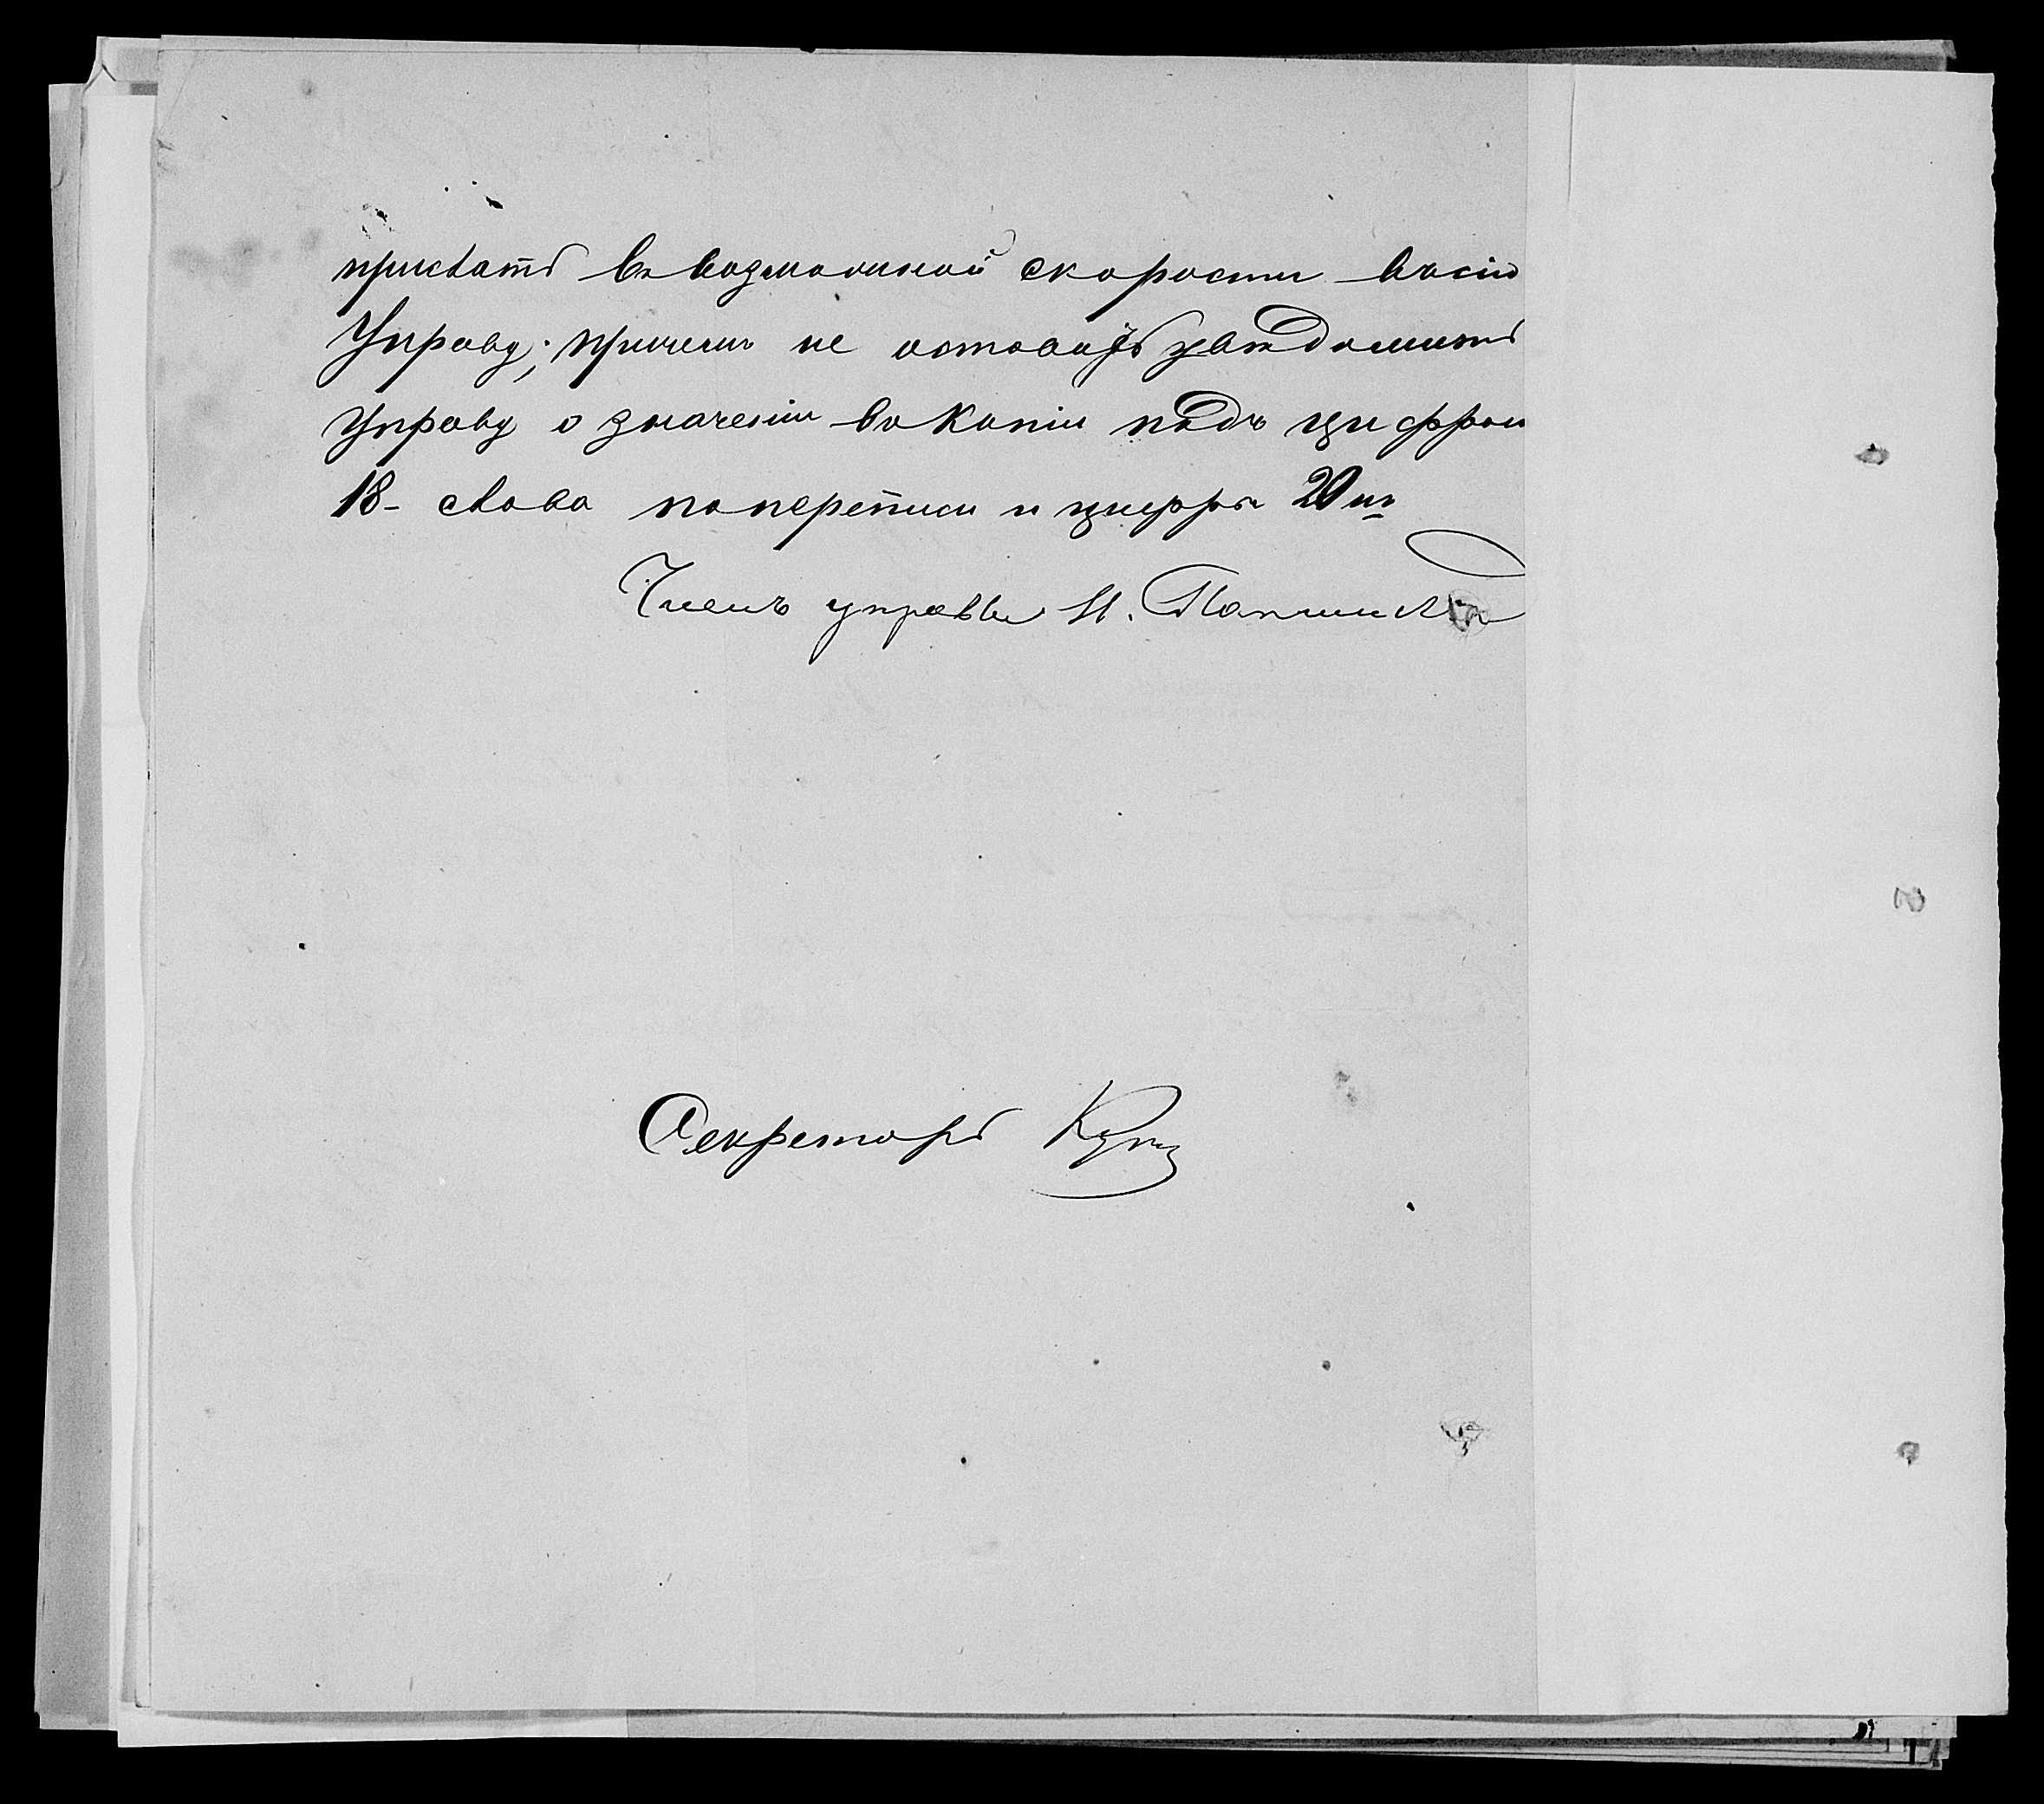 прислать въ возможной скорости въ сію
Управу; причемъ не оставить увѣдомить
Управу о значеніи въ копіи подъ цифрой
18 - слова поперетиси и цифры 20 ш
Членъ управы И.
Секретарь